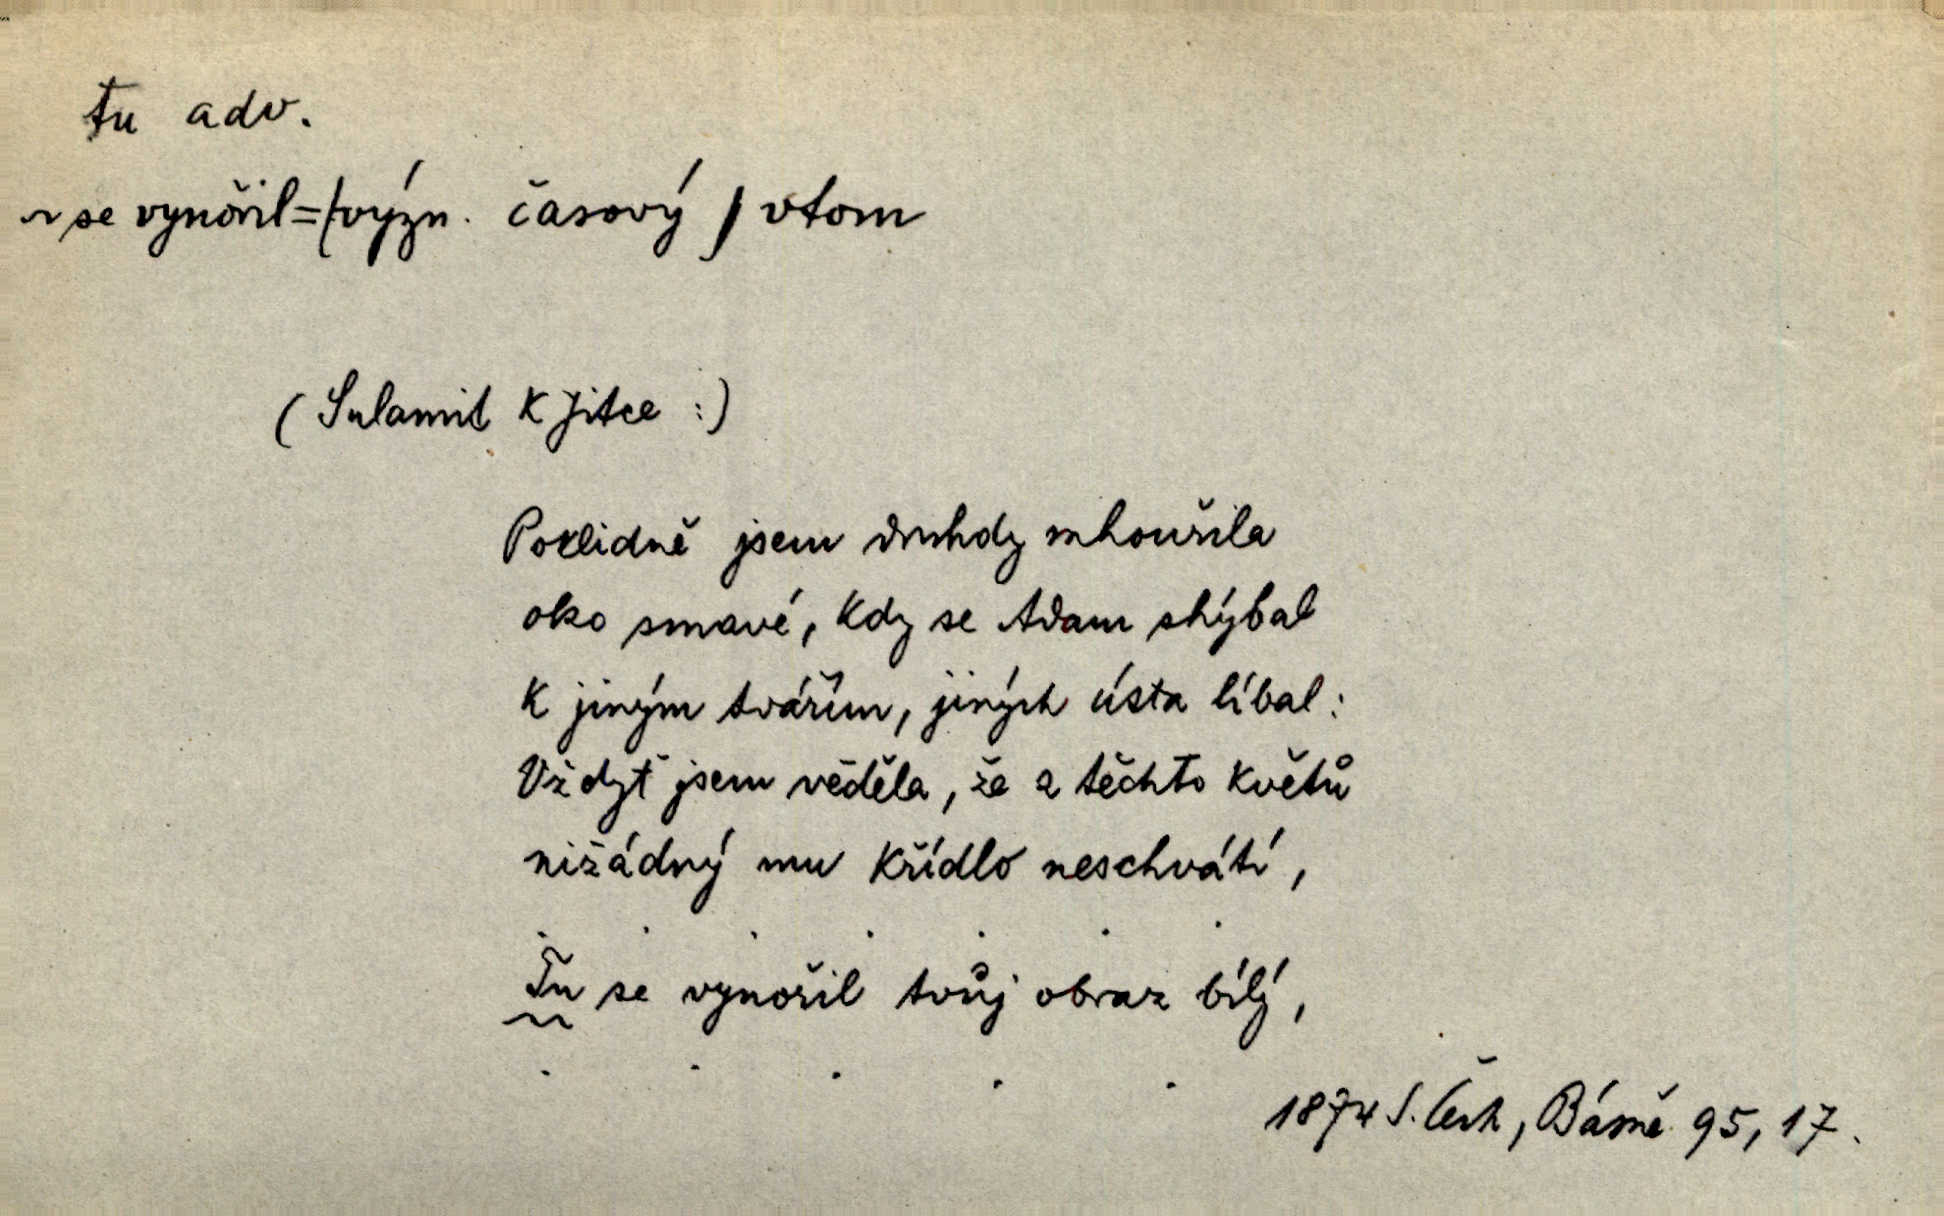 tu adv.
~ se vynořil = (význ. časový) vtom
(Sulamit k Jitce :)
Poklidně jsem druhdy mhouřila
oko smavé, kdy se Adam shýbal
k jiným tvářím, jiných ústa líbal:
Vždyť jsem věděla, že z těchto květů
nižádný mu křídlo neschvátí,
. . . . . . .
Tu se vynořil tvůj obraz bílý,
. . . . .
1874 S. Čech, Básně 95, 17.